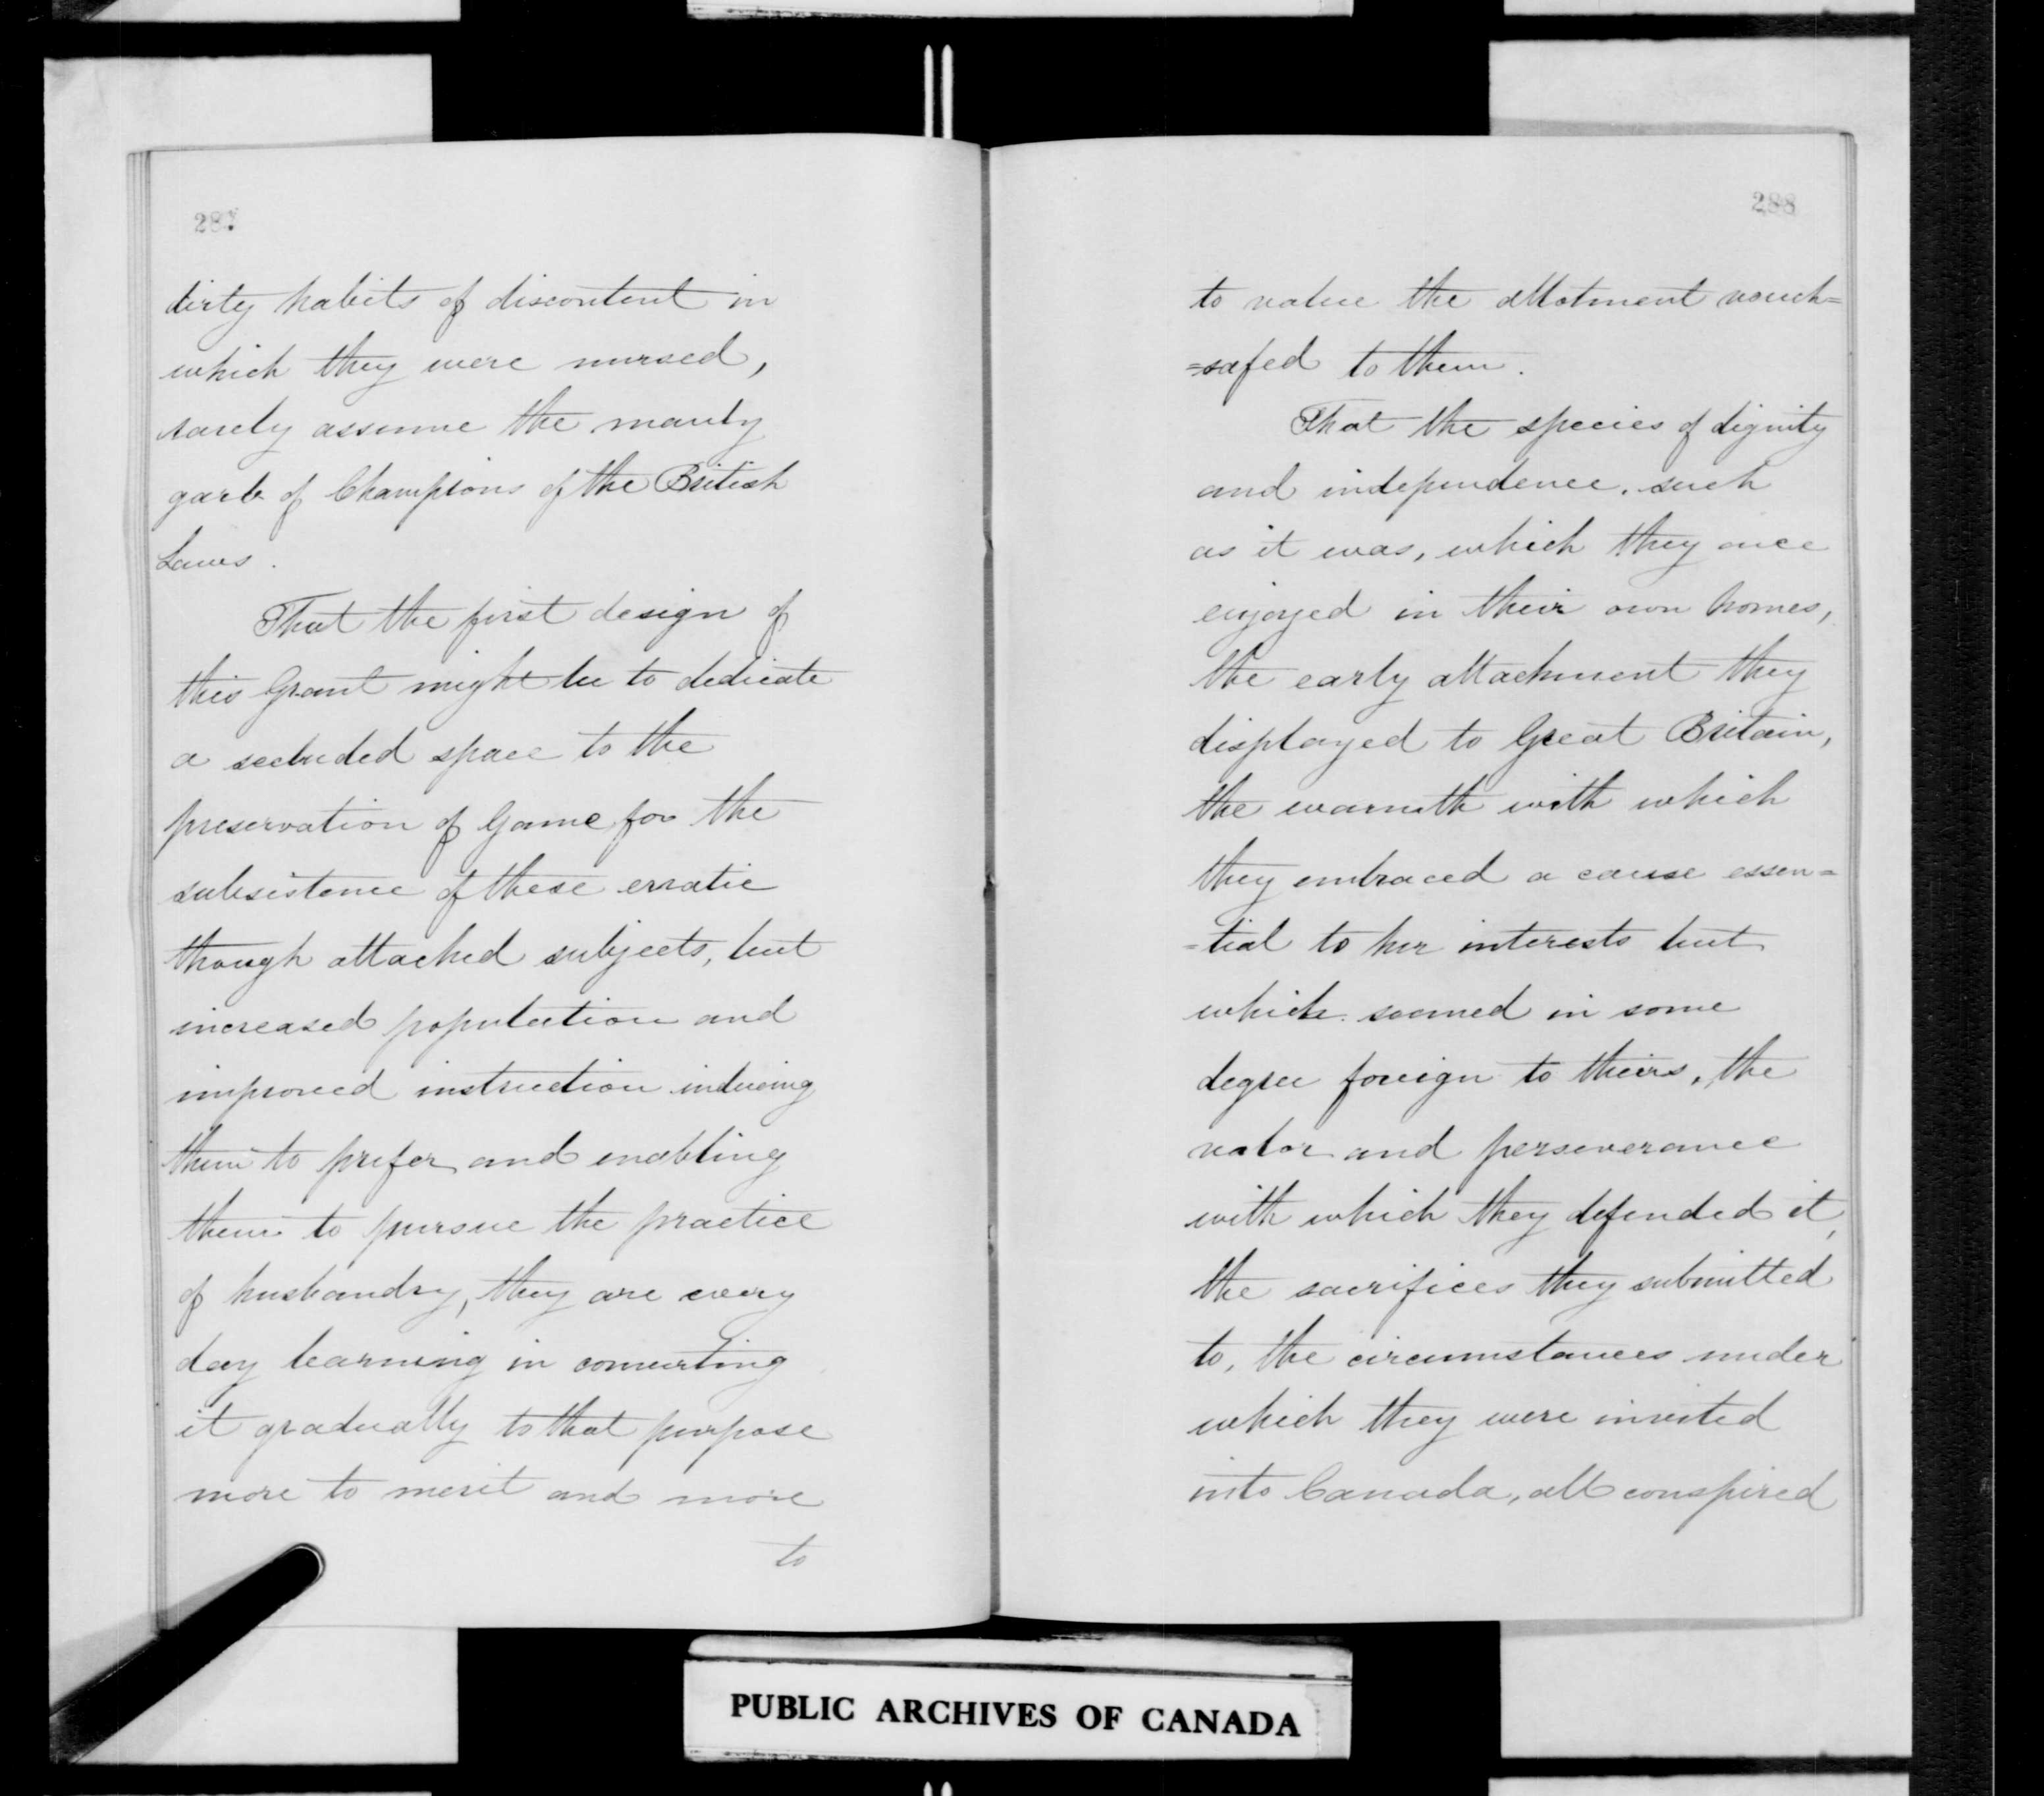 287
dirty habits of discontent in
which they were nursed,
rarely assume the manly
garb of Champions of the British
Laws.
That the first design of
this Grant might be to dedicate
a secluded space to the
preservation of Game for the
subsistence of these erratic
though attached subjects, but
increased population and
improved instruction inducing
them to prefer and enabling
them to pursue the practice
of husbandry, they are every
day learning in converting
it gradually to that purpose
more to merit and more
to
288
to value the allotment vouch=
=safed to them.
That the species of dignity
and independence, such
as it was, which they once
enjoyed in their own homes,
the early attachment they
displayed to Great Britain,
the warmth with which
they embraced a cause essen=
=tial to her interests but
which seemed in some
degree foreign to theirs, the
valor and perseverance
with which they defended it,
the sacrifices they submitted
to, the circumstances under
which they were invited
into Canada, all conspired
PUBLIC ARCHIVES OF CANADA